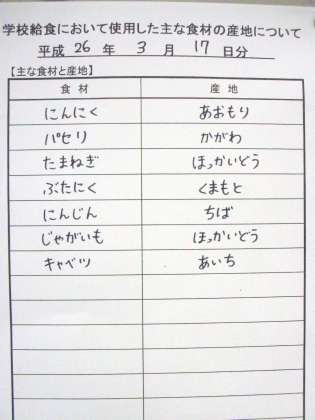 学校給食において使用した主な食材の産地について
平成 26 年 3 月 17 日分
【主な食材と産地】
食材 産地
にんにく あおもり
パセリ かがわ
たまねぎ ほっかいどう
ぶたにく くまもと
にんじん ちば
じゃがいも ほっかいどう
キャベツ あいち